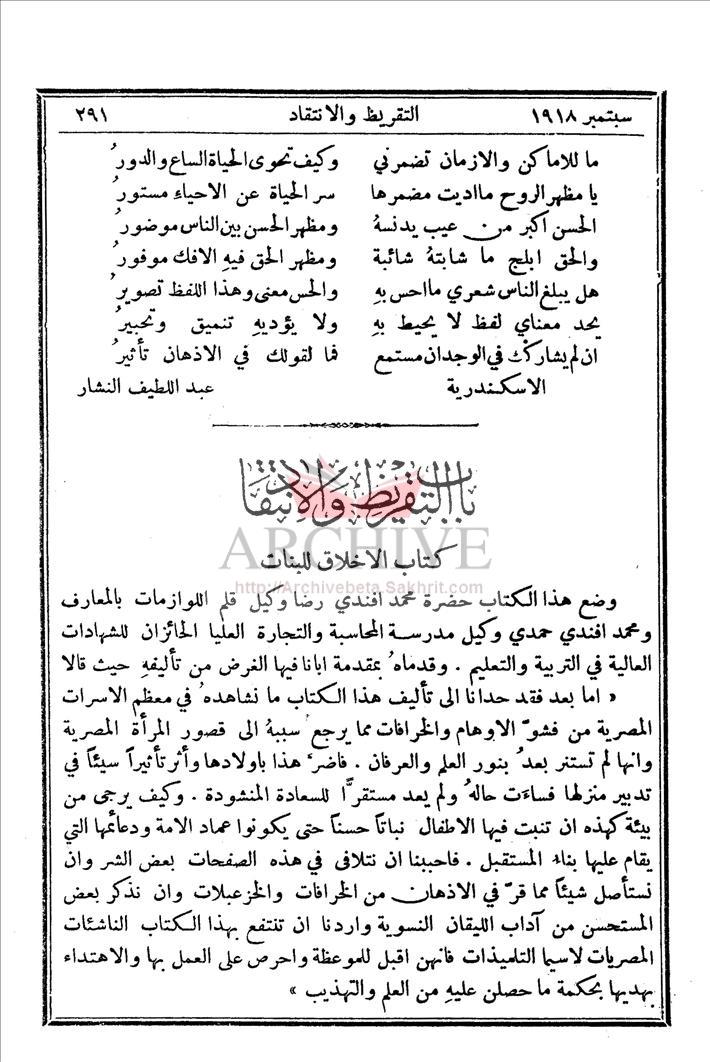 سبتمبر ١٩١٨ التقريظ والانتقاد ٢٩١
ما للاماكن والازمان تضمرني وكيف تحوى الحياة الساع والدورُ
يا مظهر الروح ما اديت مضمرها سر الحياة عن الاحياءِ مستورُ
الحسن اكبر من عيب يدنسهُ ومظهر الحسن بين الناس موضورُ
والحق ابلج ما شابتهُ شائبة ومظهر الحق فيهِ الافك موفورُ
هل يبلغ الناس شعري ما احس بهِ والحس معنى وهذا اللفظ تصويرُ
يحد معناي لفظ لا يحيط بهِ ولا يؤديهِ تنميق وتحبيرُ
ان لم يشاركْك في الوجدان مستمع فما لقولك في الاذهان تأثيرُ
الاسكندرية عبد اللطيف النشار
باب التقريظ والانتقاد
ARCHIVE
كتاب الاخلاق للبنات
http://Archivebeta.Sakhrit.com
وضع هذا الكتاب حضرة محمد افندي رضا وكيل قلم اللوازمات بالمعارف
ومحمد افندي حمدي وكيل مدرسة المحاسبة والتجارة العليا الحائزان للشهادات
العالية في التربية والتعليم . وقدماهُ بمقدمة ابانا فيها الغرض من تأليفهِ حيث قالا
« اما بعد فقد حدانا الى تأليف هذا الكتاب ما نشاهدهُ في معظم الاسرات
المصرية من فشوّ الاوهام والخرافات مما يرجع سببهُ الى قصور المرأة المصرية
وانها لم تستنر بعدُ بنور العلم والعرفان . فاضرَّ هذا باولادها وأثر تأثيراً سيئاً في
تدبير منزلها فساءَت حالهُ ولم يعد مستقرًّا للسعادة المنشودة . وكيف يرجى من
بيئة كهذه ان تنبت فيها الاطفال نباتاً حسناً حتى يكونوا عماد الامة ودعائمها التي
يقام عليها بناءُ المستقبل . فاحببنا ان نتلافى في هذه الصفحات بعض الشر وان
نستأصل شيئاً مما قرّ في الاذهان من الخرافات والخزعبلات وان نذكر بعض
المستحسن من آداب الليقان النسوية واردنا ان تنتفع بهذا الكتاب الناشئات
المصريات لاسيما التلميذات فانهن اقبل للموعظة واحرص على العمل بها والاهتداء
بهديها بحكمة ما حصلن عليهِ من العلم والتهذيب »